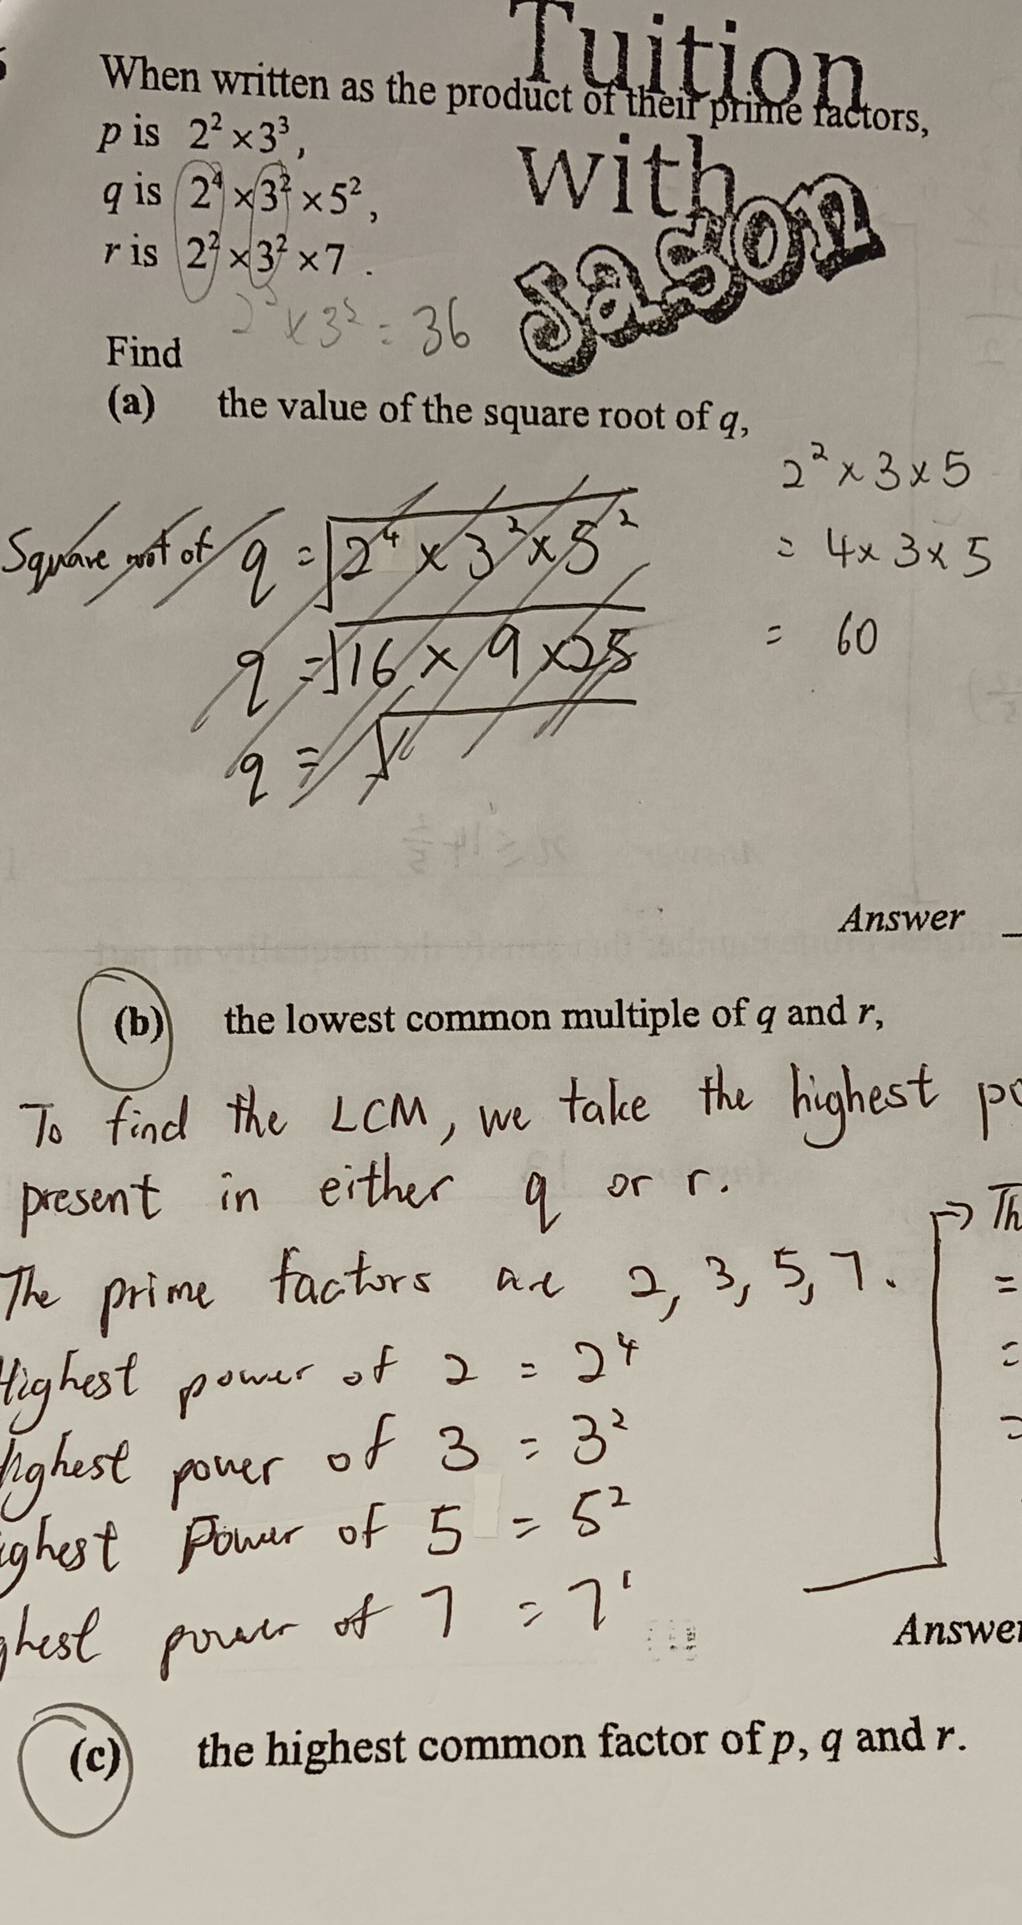 Tuition
When written as the product of their prime factors,
p is 2² × 3³,
with
q is 2⁴ × 3² × 5²,
Jason
r is 2² × 3² × 7.
2² × 3² = 36
Find
(a) the value of the square root of q,
2² × 3 × 5
= 4 × 3 × 5
= 60
Square root of q = √2⁴ × 3² × 5²
q = √16 × 9 × 25
q = √
Answer
(b) the lowest common multiple of q and r,
To find the LCM, we take the highest po
present in either q or r.
The prime factors are 2, 3, 5, 7.
Highest power of 2 = 2⁴
highest power of 3 = 3²
ighest Power of 5 = 5²
ghest power of 7 = 7¹
→ Th
=
=
=
Answer
(c) the highest common factor of p, q and r.